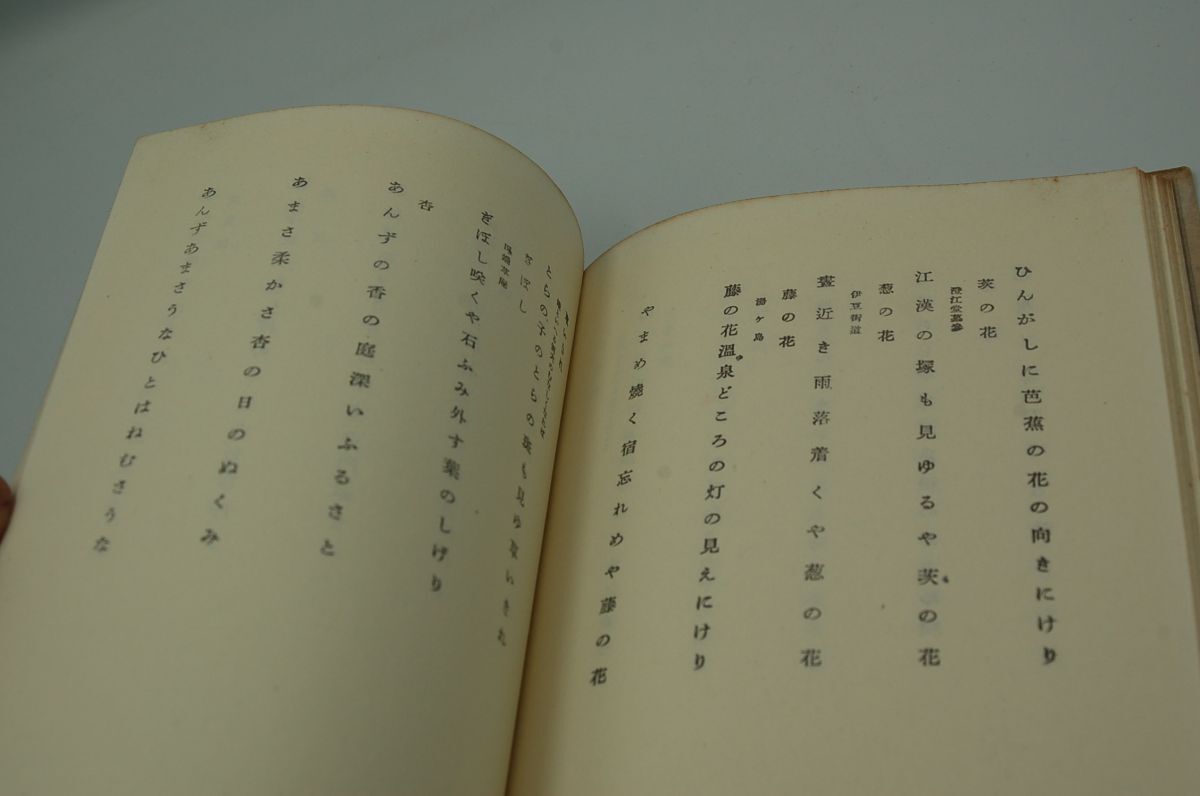 ひんがしに芭蕉の花の向きにけり
茨の花
澄江堂墓參
江漢の塚も見ゆるや茨の花
葱の花
伊豆街道
晝近き雨落着くや葱の花
藤の花
湯ヶ島
藤の花溫泉どころの灯の見えにけり
やまめ燒く宿忘れめや藤の花
とらの子のとらの斑も見ゆ
ぎぼし
ぎぼし咲くや石ふみ外す葉のしげり
杏
あんずの香の庭深いふるさと
あまさ柔かさ杏の日のぬくみ
あんずあまさうなひとはねむさうな